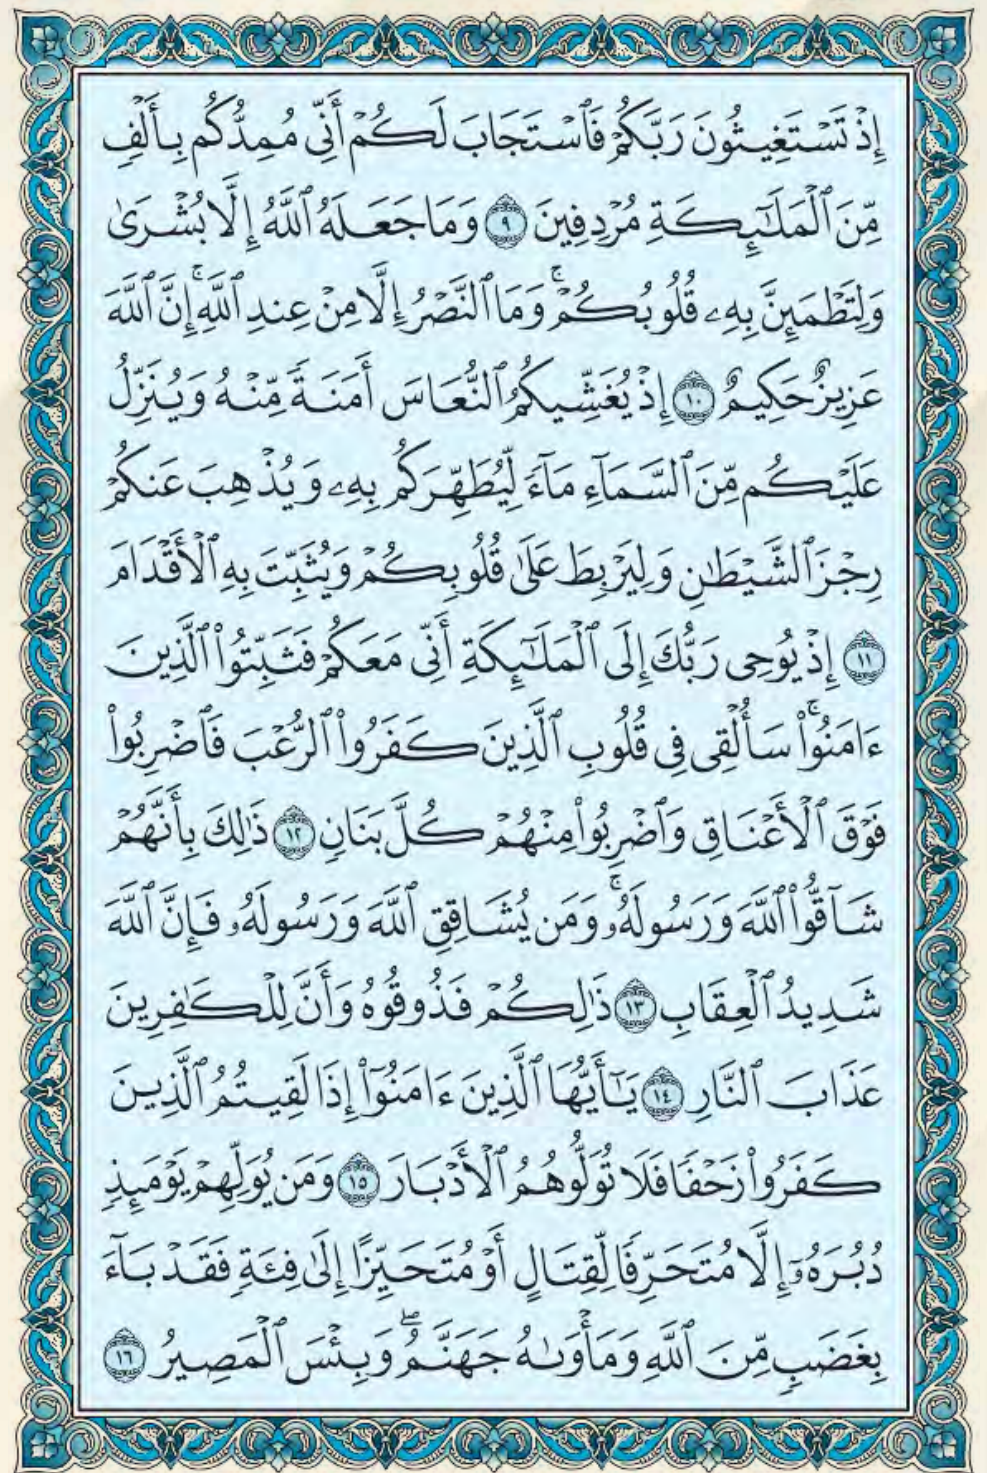 إِذْ تَسْتَغِيثُونَ رَبَّكُمْ فَٱسْتَجَابَ لَكُمْ أَنِّى مُمِدُّكُم بِأَلْفٍ
مِّنَ ٱلْمَلَـٰٓئِكَةِ مُرْدِفِينَ ٩ وَمَا جَعَلَهُ ٱللَّهُ إِلَّا بُشْرَىٰ
وَلِتَطْمَئِنَّ بِهِۦ قُلُوبُكُمْ ۚ وَمَا ٱلنَّصْرُ إِلَّا مِنْ عِندِ ٱللَّهِ ۚ إِنَّ ٱللَّهَ
عَزِيزٌ حَكِيمٌ ١٠ إِذْ يُغَشِّيكُمُ ٱلنُّعَاسَ أَمَنَةً مِّنْهُ وَيُنَزِّلُ
عَلَيْكُم مِّنَ ٱلسَّمَآءِ مَآءً لِّيُطَهِّرَكُم بِهِۦ وَيُذْهِبَ عَنكُمْ
رِجْزَ ٱلشَّيْطَـٰنِ وَلِيَرْبِطَ عَلَىٰ قُلُوبِكُمْ وَيُثَبِّتَ بِهِ ٱلْأَقْدَامَ
١١ إِذْ يُوحِى رَبُّكَ إِلَى ٱلْمَلَـٰٓئِكَةِ أَنِّى مَعَكُمْ فَثَبِّتُوا۟ ٱلَّذِينَ
ءَامَنُوا۟ ۚ سَأُلْقِى فِى قُلُوبِ ٱلَّذِينَ كَفَرُوا۟ ٱلرُّعْبَ فَٱضْرِبُوا۟
فَوْقَ ٱلْأَعْنَاقِ وَٱضْرِبُوا۟ مِنْهُمْ كُلَّ بَنَانٍ ١٢ ذَٰلِكَ بِأَنَّهُمْ
شَآقُّوا۟ ٱللَّهَ وَرَسُولَهُۥ ۚ وَمَن يُشَاقِقِ ٱللَّهَ وَرَسُولَهُۥ فَإِنَّ ٱللَّهَ
شَدِيدُ ٱلْعِقَابِ ١٣ ذَٰلِكُمْ فَذُوقُوهُ وَأَنَّ لِلْكَـٰفِرِينَ
عَذَابَ ٱلنَّارِ ١٤ يَـٰٓأَيُّهَا ٱلَّذِينَ ءَامَنُوٓا۟ إِذَا لَقِيتُمُ ٱلَّذِينَ
كَفَرُوا۟ زَحْفًا فَلَا تُوَلُّوهُمُ ٱلْأَدْبَارَ ١٥ وَمَن يُوَلِّهِمْ يَوْمَئِذٍ
دُبُرَهُۥٓ إِلَّا مُتَحَرِّفًا لِّقِتَالٍ أَوْ مُتَحَيِّزًا إِلَىٰ فِئَةٍ فَقَدْ بَآءَ
بِغَضَبٍ مِّنَ ٱللَّهِ وَمَأْوَىٰهُ جَهَنَّمُ ۖ وَبِئْسَ ٱلْمَصِيرُ ١٦